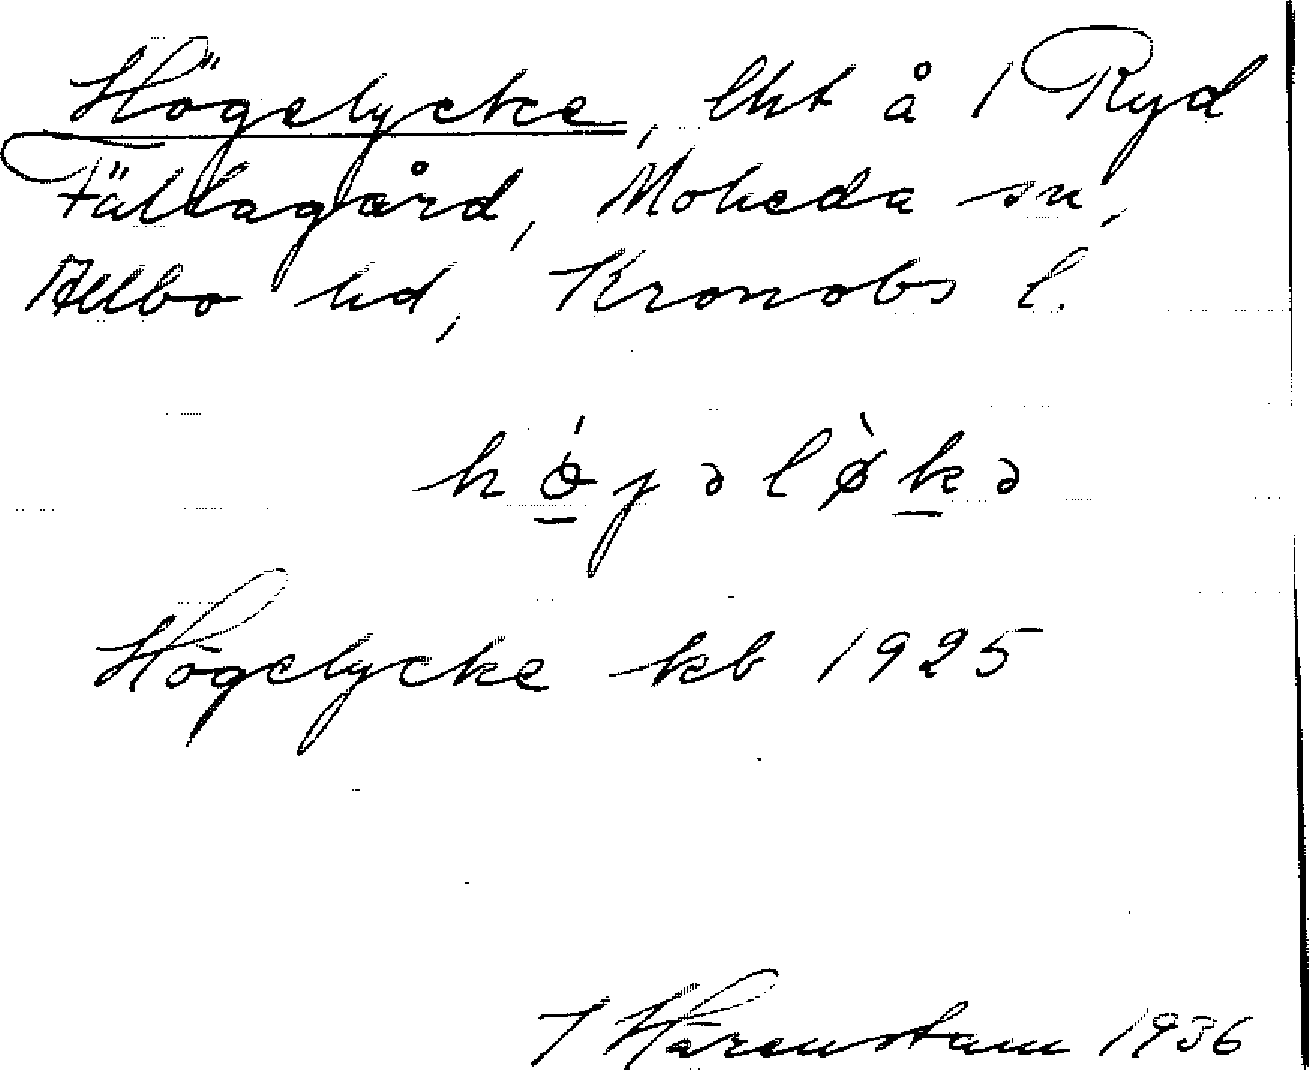 Högelycke, lht å 1 Ryd
Fällagård, Moheda sn,
Allbo hd, Kronobs l.
hǿjəlø̀kə
Högelycke kb 1925
J Härenstam 1936